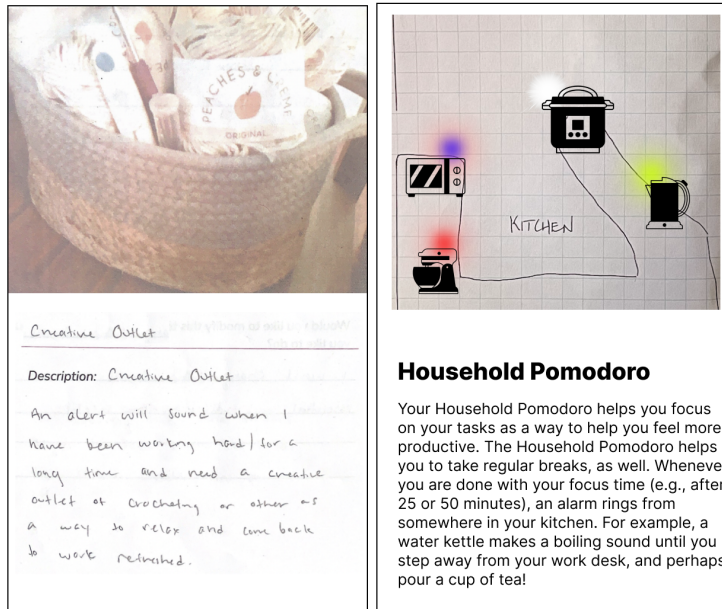 PEACHES & CREME
ORIGINAL
Creative Outlet
Description: Creative Outlet
An alert will sound when I
have been working hard/for a
long time and need a creative
outlet of crocheting or other as
a way to relax and come back
to work refreshed.
KITCHEN
Household Pomodoro
Your Household Pomodoro helps you focus
on your tasks as a way to help you feel more
productive. The Household Pomodoro helps
you to take regular breaks, as well. Wheneve
you are done with your focus time (e.g., after
25 or 50 minutes), an alarm rings from
somewhere in your kitchen. For example, a
water kettle makes a boiling sound until you
step away from your work desk, and perhaps
pour a cup of tea!